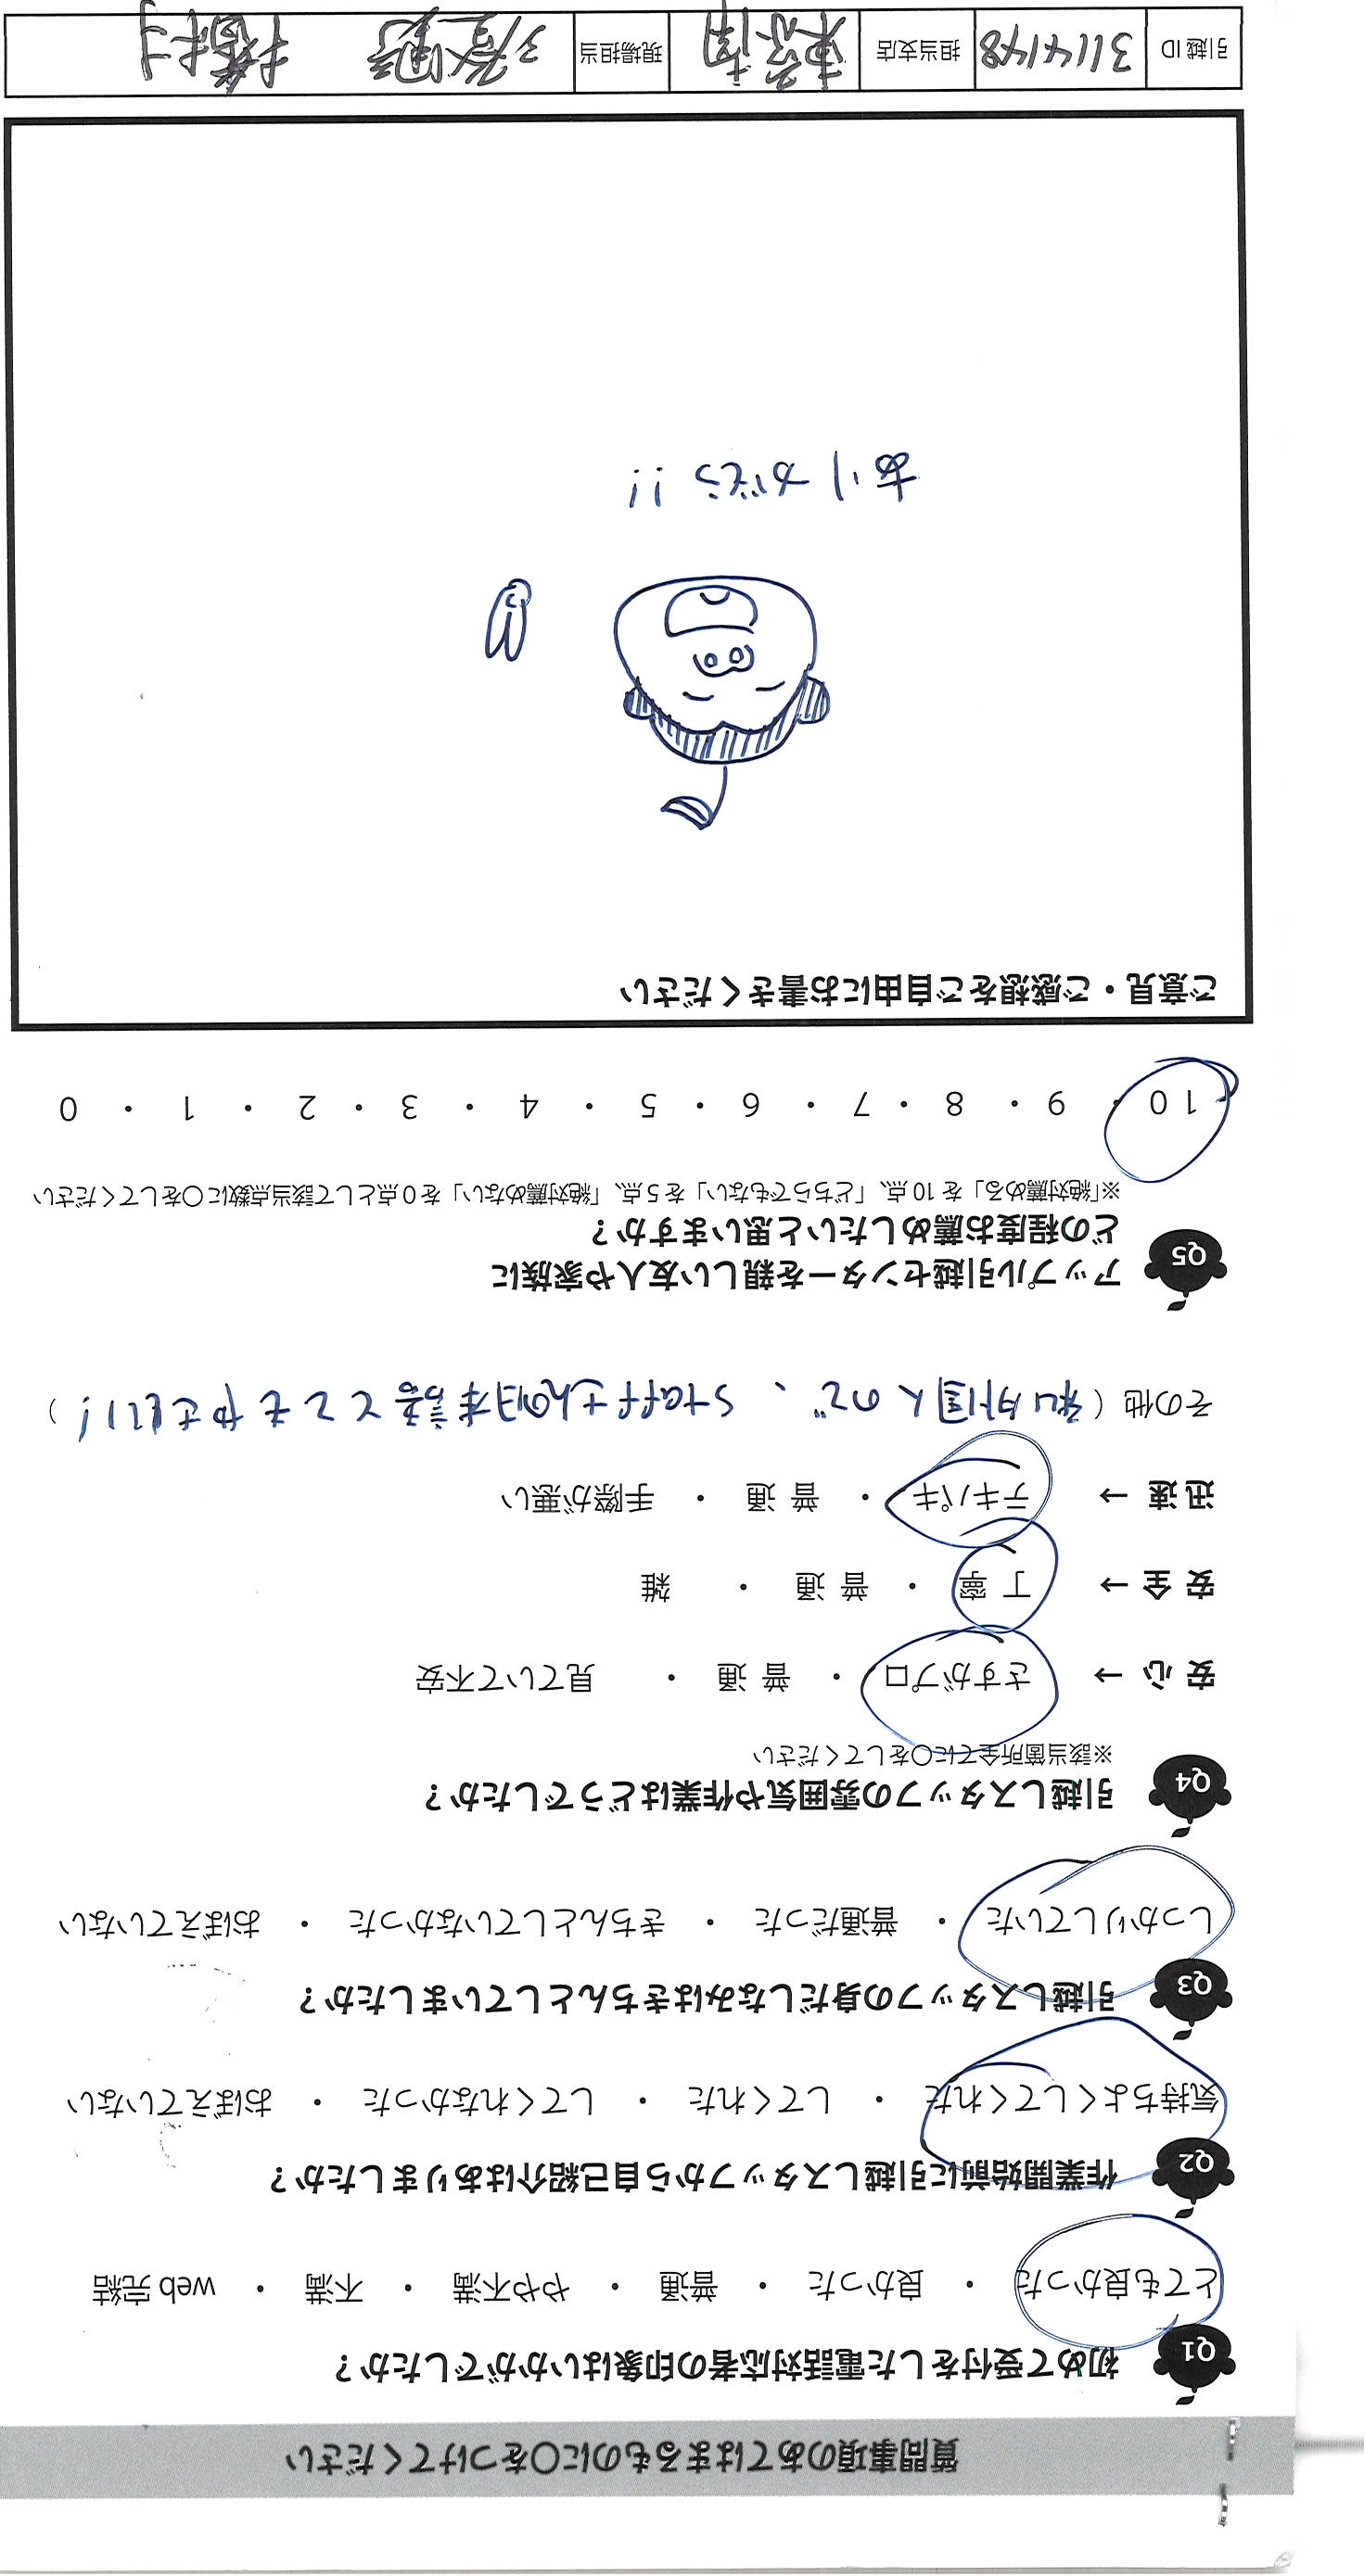 質問事項のあてはまるものに〇をつけてください
Q1 初めて受付をした電話対応者の印象はいかがでしたか？
とても良かった ・ 良かった ・ 普通 ・ やや不満 ・ 不満 ・ web 完結
Q2 作業開始前に引越しスタッフから自己紹介はありましたか？
気持ちよくしてくれた ・ してくれた ・ してくれなかった ・ おぼえていない
Q3 引越しスタッフの身だしなみはきちんとしていましたか？
しっかりしていた ・ 普通だった ・ きちんとしていなかった ・ おぼえていない
Q4 引越しスタッフの雰囲気や作業はどうでしたか？
※該当箇所全てに〇をしてください
安心 → さすがプロ ・ 普通 ・ 見ていて不安
安全 → 丁寧 ・ 普通 ・ 雑
迅速 → テキパキ ・ 普通 ・ 手際が悪い
その他 ( 私は外国人ので、staffさんの日本語とてもやさしい! )
Q5 アップル引越センターを親しい友人や家族に
どの程度お薦めしたいと思いますか？
※「絶対薦める」を 10 点、「どちらでもない」を 5 点、「絶対薦めない」を 0 点として該当点数に〇をしてください
10 ・ 9 ・ 8 ・ 7 ・ 6 ・ 5 ・ 4 ・ 3 ・ 2 ・ 1 ・ 0
ご意見・ご感想をご自由にお書きください
ありがとう!!
引越 ID 3114148 担当支店 東京南 現場担当